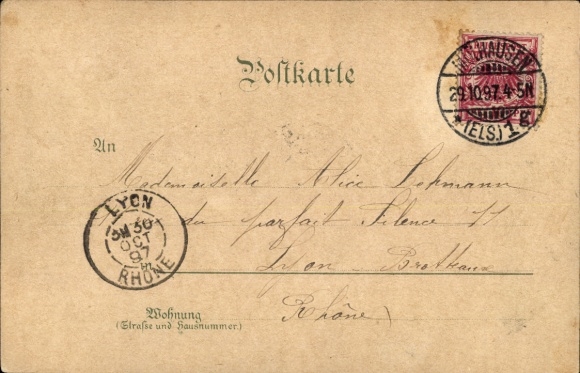 Postkarte
MÜLHAUSEN
29.10.97. 4-5N
* (ELS.) 1 g
An
Mademoiselle Alice Lehmann
LYON
3M 30
OCT
97
RHÔNE
du parfait Silence 11
Lyon-Brotteaux
Rhône
Wohnung
(Straße und Hausnummer.)